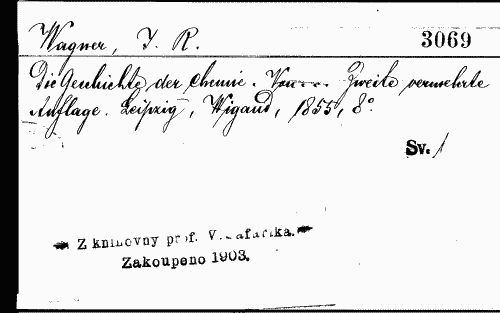 Wagner, J. R. 3069
Die Geschichte der Chemie. Zweite vermehrte
Auflage. Leipzig, Wigand, 1855, 8°.
Sv. 1
Z knihovny prof. V. Šafaříka.
Zakoupeno 1903.